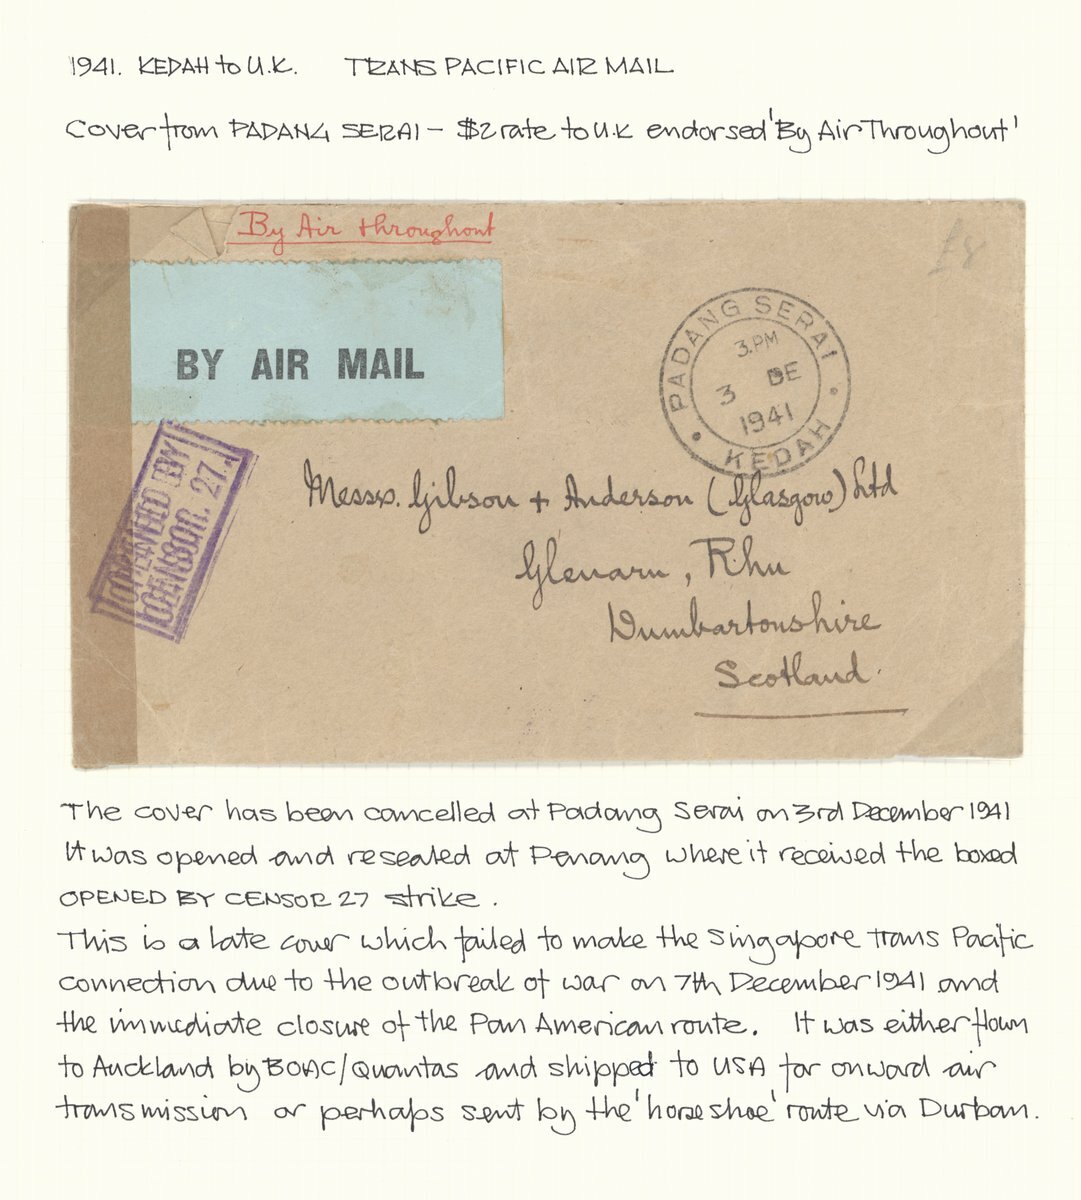 1941. KEDAH to U.K. TRANS PACIFIC AIR MAIL
Cover from PADANG SERAI - $2 rate to U.K endorsed 'By Air Throughout'
By Air throughout
£8
BY AIR MAIL
PADANG SERAI
3.PM
3 DE
1941
KEDAH
OPENED BY
CENSOR. 27.
Messrs. Gibson + Anderson (Glasgow) Ltd
Glenarn, Rhu
Dumbartonshire
Scotland.
The cover has been cancelled at Padang Serai on 3rd December 1941
It was opened and resealed at Penang where it received the boxed
OPENED BY CENSOR 27 strike.
This is a late cover which failed to make the Singapore trans Pacific
connection due to the outbreak of war on 7th December 1941 and
the immediate closure of the Pan American route. It was either flown
to Auckland by BOAC/Quantas and shipped to USA for onward air
transmission or perhaps sent by the 'horse shoe' route via Durban.